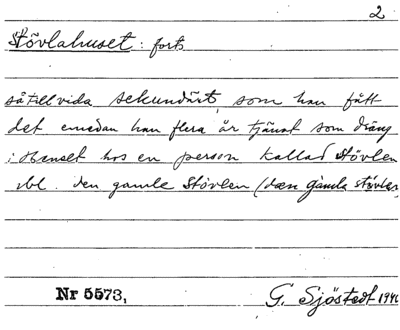 2
Stövlahuset: forts
såtillvida sekundärt, som han fått
det emedan han flera år tjänat som dräng
i huset hos en person kallad Stövlen
bl. den gamle Stövlen (dæn gamla stövlen
Nr 5573,
G. Sjöstedt 194